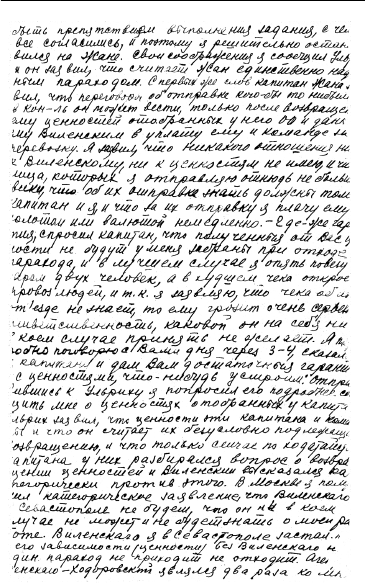 быть препятствием выполнения задания, с чем
все согласились, и поэтому я решительно остано
вился на Жане. Свои соображения я сообщил Уль
и он заявил, что считает Жан единственно на
ным пароходом. С первых же слов капитан Жана
вил, что переговоры об отправке кого-бы то ни было
и кон- он может вести, только после возвраще
ему ценностей отобранных у него и дан
ему Виленским в уплату ему и команде за
перевозку. Я заявил что никакого отношения ни
к Виленскому, ни к ценностям не имею, и что
лица, которых я отправляю отнюдь не больше
вики, что об их отправке знать должны только
капитан и я и что за их отправку я плачу ему
золотом или валютой немедленно. – Где же гаран
тия, спросил капитан, что полученные от вас ц
ности не будут у меня при отходе
парохода, и в лучшем случае я опять повезу
даром двух человек, а в худшем чека откроет
провоз людей, и т.к. я заявляю, что чека об их
отъезде не знает, то ему грозит очень серьез
ответственность, каковой он на себя ни
в коем случае принять не желает. Я по
дробно поговорю с Вами дня через 3-4, сказал
я капитану и дам Вам достаточных гаранти
с ценностями, что-нибудь устроим. Отпра
вившись к Ульриху я попросил его подробно со
щить мне о ценностях отобранных у капита
Ульрих заявил, что ценности эти капитана и ком
ы и что он считает их безусловно подлежащи
возвращению, и что только сейчас по ходатайс
капитана у них разбирался вопрос о возвра
щении ценностей и Виленский высказался ка
тегорически против этого. В Москве я пом
ил категорическое заявление, что Виленского
Севастополе не будет, что он ни в коем
случае не может и не будет знать о моей ра
боте. Виленского я в Севастополе застал
его зависимости (ценности) без Виленского ни
один пароход не приходит не отходит. Аген
енского – Ходоровский являлся два раза ко мне